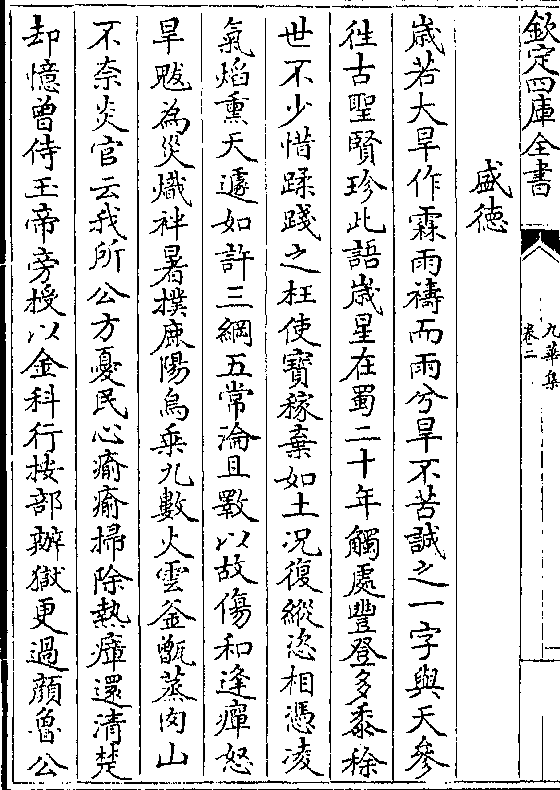 欽定四庫全書
九華集
卷二
盛德
歲若大旱作霖雨禱而雨兮旱不苦誠之一字與天參
徃古聖賢珍此語歲星在蜀二十年觸處豐登多黍稌
世不少惜蹂踐之枉使寶稼棄如土况復縱恣相憑凌
氣焰熏天遽如許三綱五常淪且斁以故傷和逢癉怒
旱魃為災熾袢暑撲鹿陽烏乗九數火雲釜甑蒸肉山
不奈炎官云我所公方憂民心瘉瘉掃除熱瘴還清楚
却憶曾侍玉帝旁授以金科行按部辦獄更過顔魯公